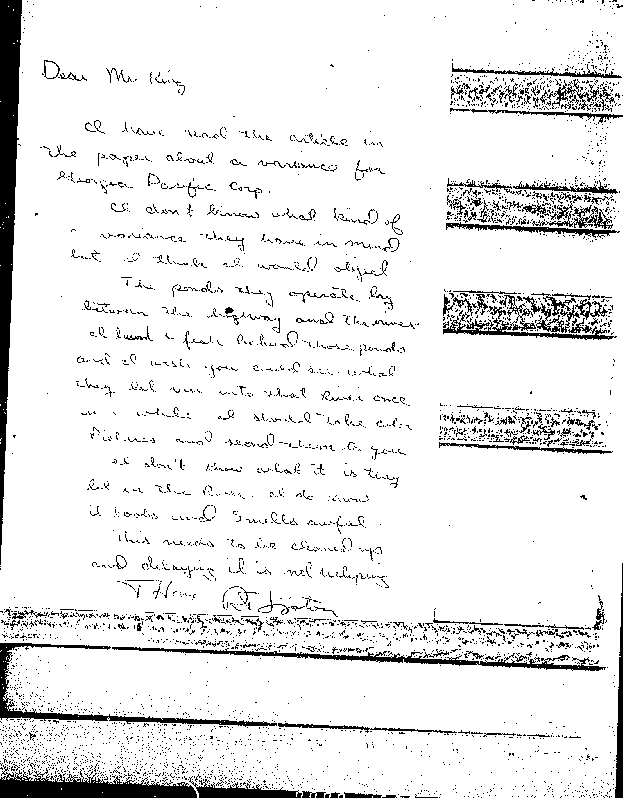 Dear Mr. King
I have read the article in
the paper about a variance for
Georgia Pacific Corp.
I don't know what kind of
variance they have in mind
but I think I would object
The ponds they operate lay
between the highway and the river
I hunt & fish behind those ponds
and I wish you could see what
they let run into that River once
in a while I should take color
Pictures and send them to you
I don't know what it is they
let in the River. I do know
it looks and smells awful.
This needs to be cleaned up
and delaying it is not helping